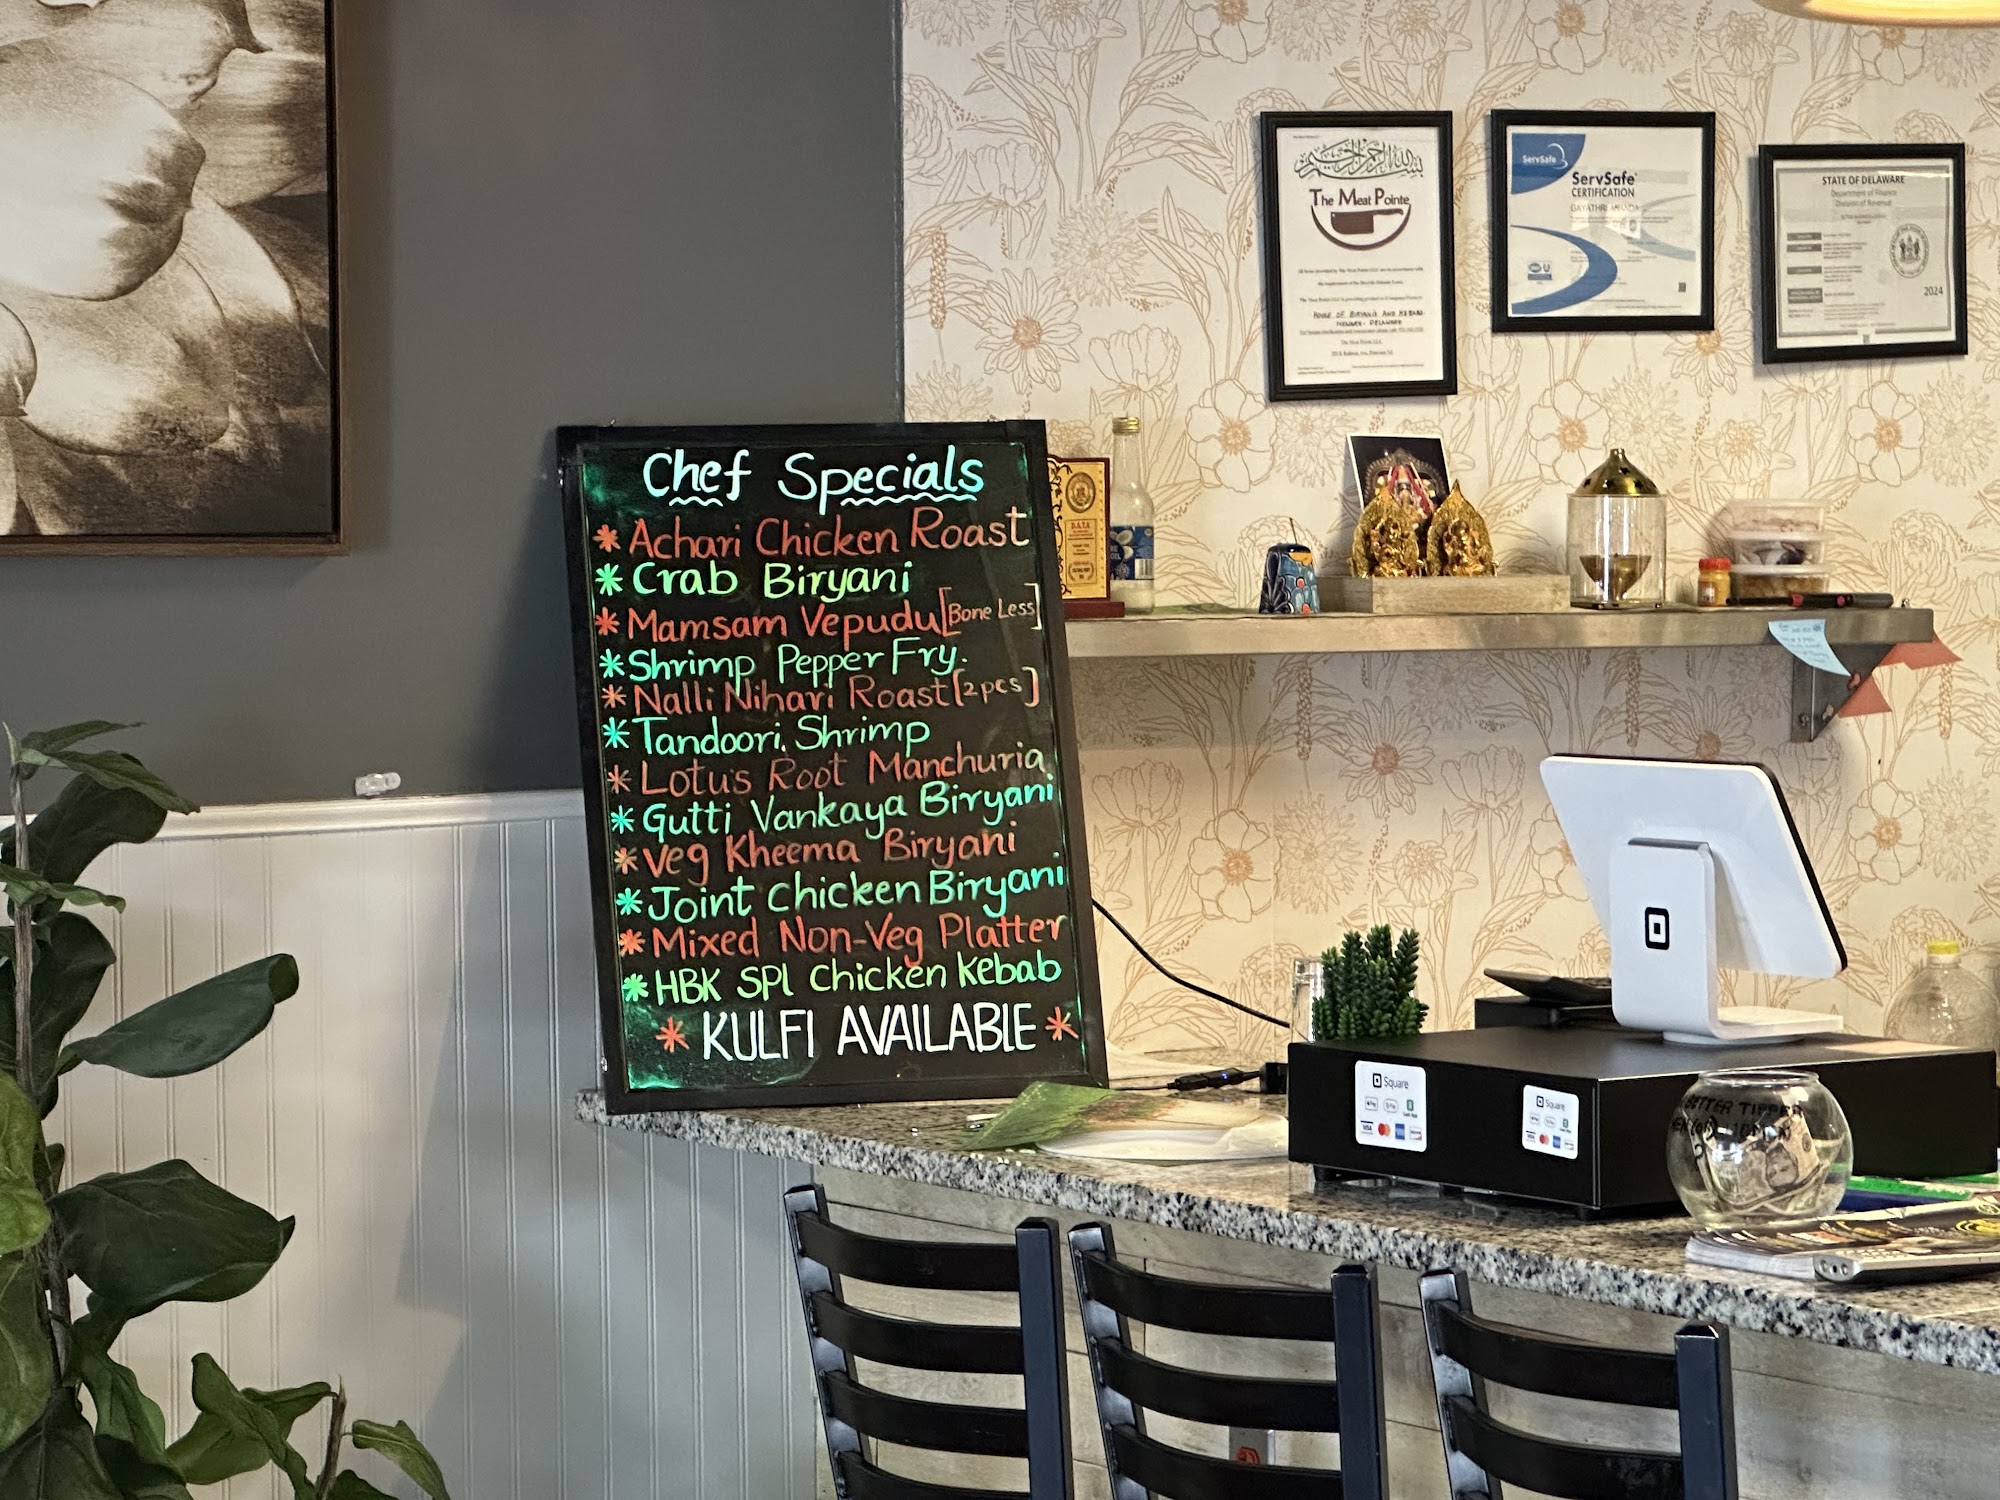 Chef Specials
* Achari Chicken Roast
* Crab Biryani
* Mamsam Vepudu [Bone Less]
* Shrimp Pepper Fry.
* Nalli Nihari Roast [2pcs]
* Tandoori Shrimp
* Lotus Root Manchuria
* Gutti Vankaya Biryani
* Veg Kheema Biryani
* Joint Chicken Biryani
* Mixed Non-Veg Platter
* HBK SPl Chicken Kebab
* KULFI AVAILABLE *
بسم الله الرحمن الرحيم
The Meat Pointe
HOUSE OF BIRYANIS AND KEBABS
NEWARK - DELAWARE
The Meat Point LLC
ServSafe
ServSafe
CERTIFICATION
STATE OF DELAWARE
Department of Finance
Division of Revenue
2024
D.A.T.A
Square
Pay
Pay
Cash App
VISA
Square
VISA
BETTER TIPPER